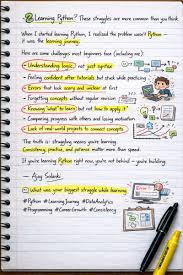 Learning Python? These struggles are more common than you think.
When I started learning Python, I realised the problem wasn't Python - it was the learning journey.
Here are some challenges most beginners face (including me):
Understanding logic, not just syntax
Feeling confident after tutorials but stuck while practicing
Errors that look scary and unclear at first
Forgetting concepts without regular revision
Knowing "what" to do but not how to apply it
Comparing progress with others and losing motivation
Lack of real-world projects to connect concepts
The truth is: struggling means you're learning.
Consistency, practice, and patience matter more than speed.
If you're learning Python right now, you're not behind - you're building.
- Ajay Solanki
What was your biggest struggle while learning
#Python #LearningJourney #DataAnalytics
#Programming #CareerGrowth #Consistency